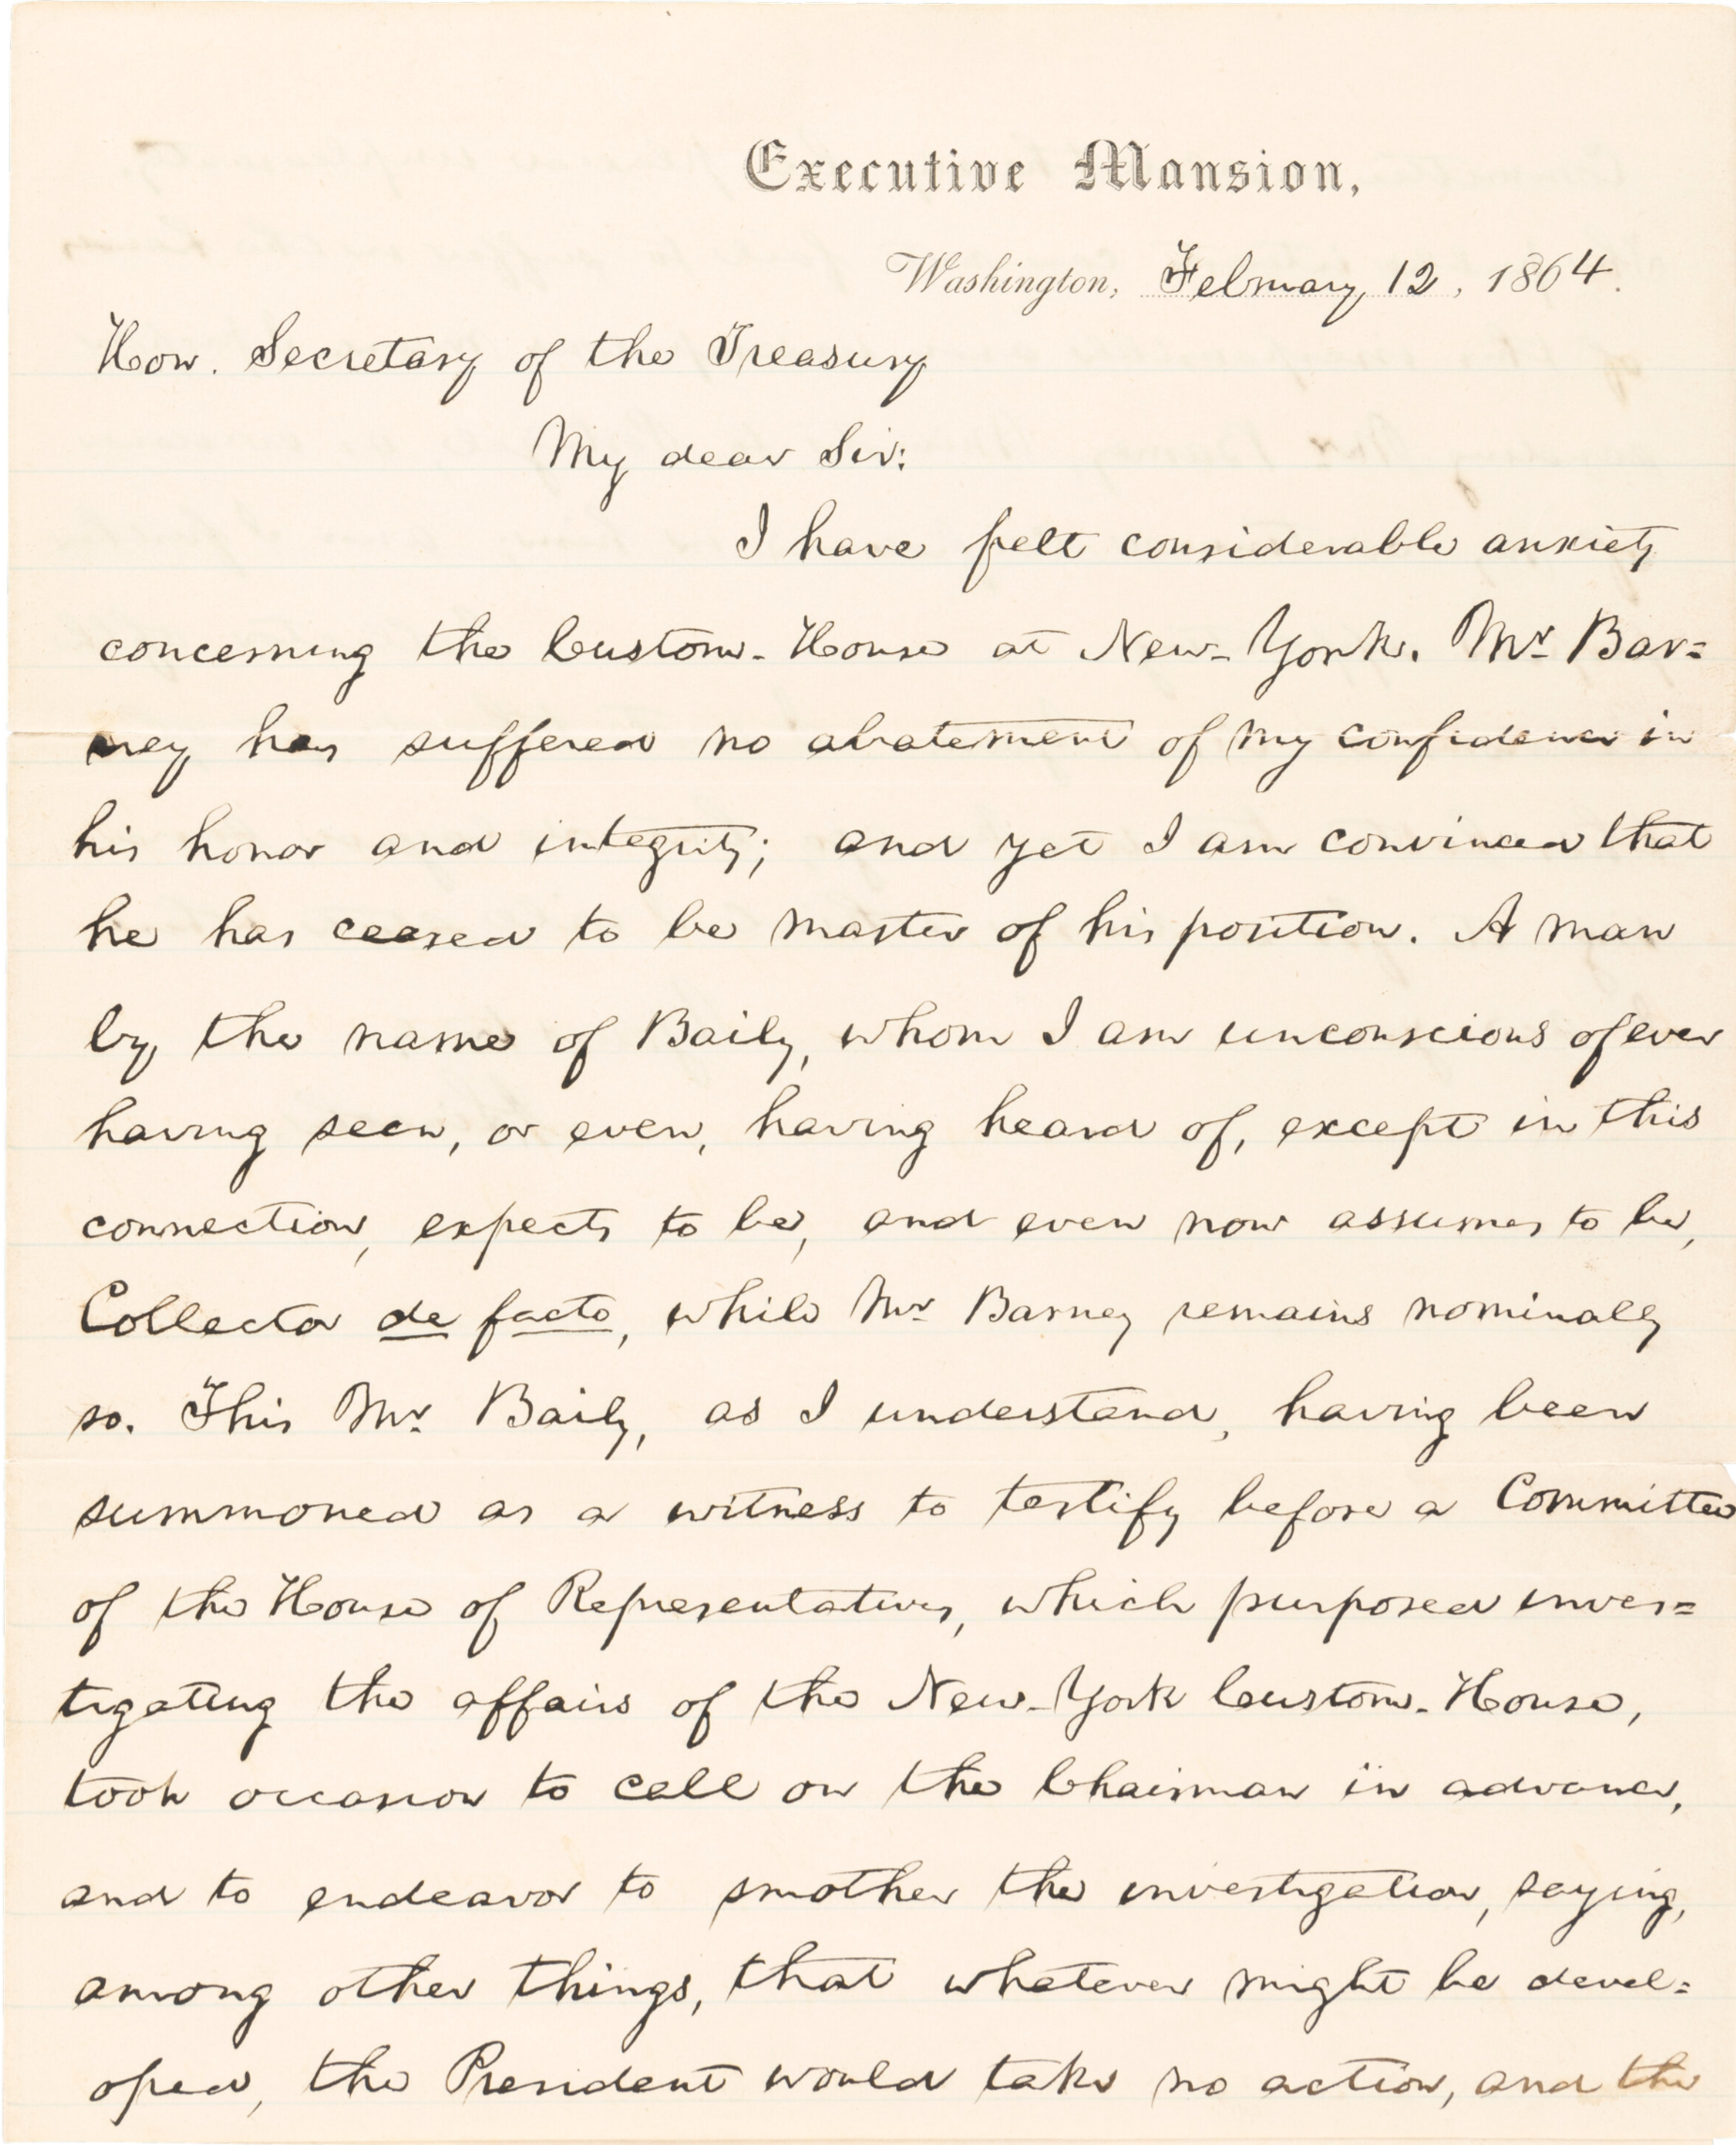 Executive Mansion,
Washington, February 12, 1864.
Hon. Secretary of the Treasury
My dear Sir:
I have felt considerable anxiety
concerning the Custom-House at New-York. Mr Bar=
ney has suffered no abatement of my confidence in
his honor and integrity; and yet I am convinced that
he has ceased to be master of his position. A man
by the name of Baily, whom I am unconscious of ever
having seen, or even, having heard of, except in this
connection, expects to be, and even now assumes to be,
Collector de facto, while Mr Barney remains nominally
so. This Mr. Baily, as I understand, having been
summoned as a witness to testify before a Committee
of the House of Representatives, which purposed inves=
tigating the affairs of the New-York Custom-House,
took occasion to call on the Chairman in advance,
and to endeavor to smother the investigation, saying,
among other things, that whatever might be devel=
oped, the President would take no action, and the